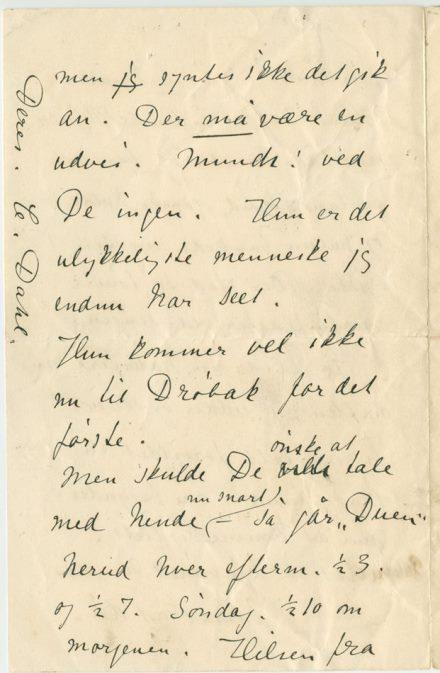 men jeg syntes ikke det gik
an. Der må være en
udvei. Munch! ved
De ingen. Hun er det
ulykkeligste menneske jeg
endnu har seet.
Hun kommer vel ikke
nu til Drøbak for det
første.
ønske at
Men skulde De vilde tale
nu snart?
med hende – Så går „Duen“
herud hver efterm. ½ 3.
og ½ 7. Søndag. ½ 10 om
morgenen. Hilsen fra
Deres. C. Dahl.